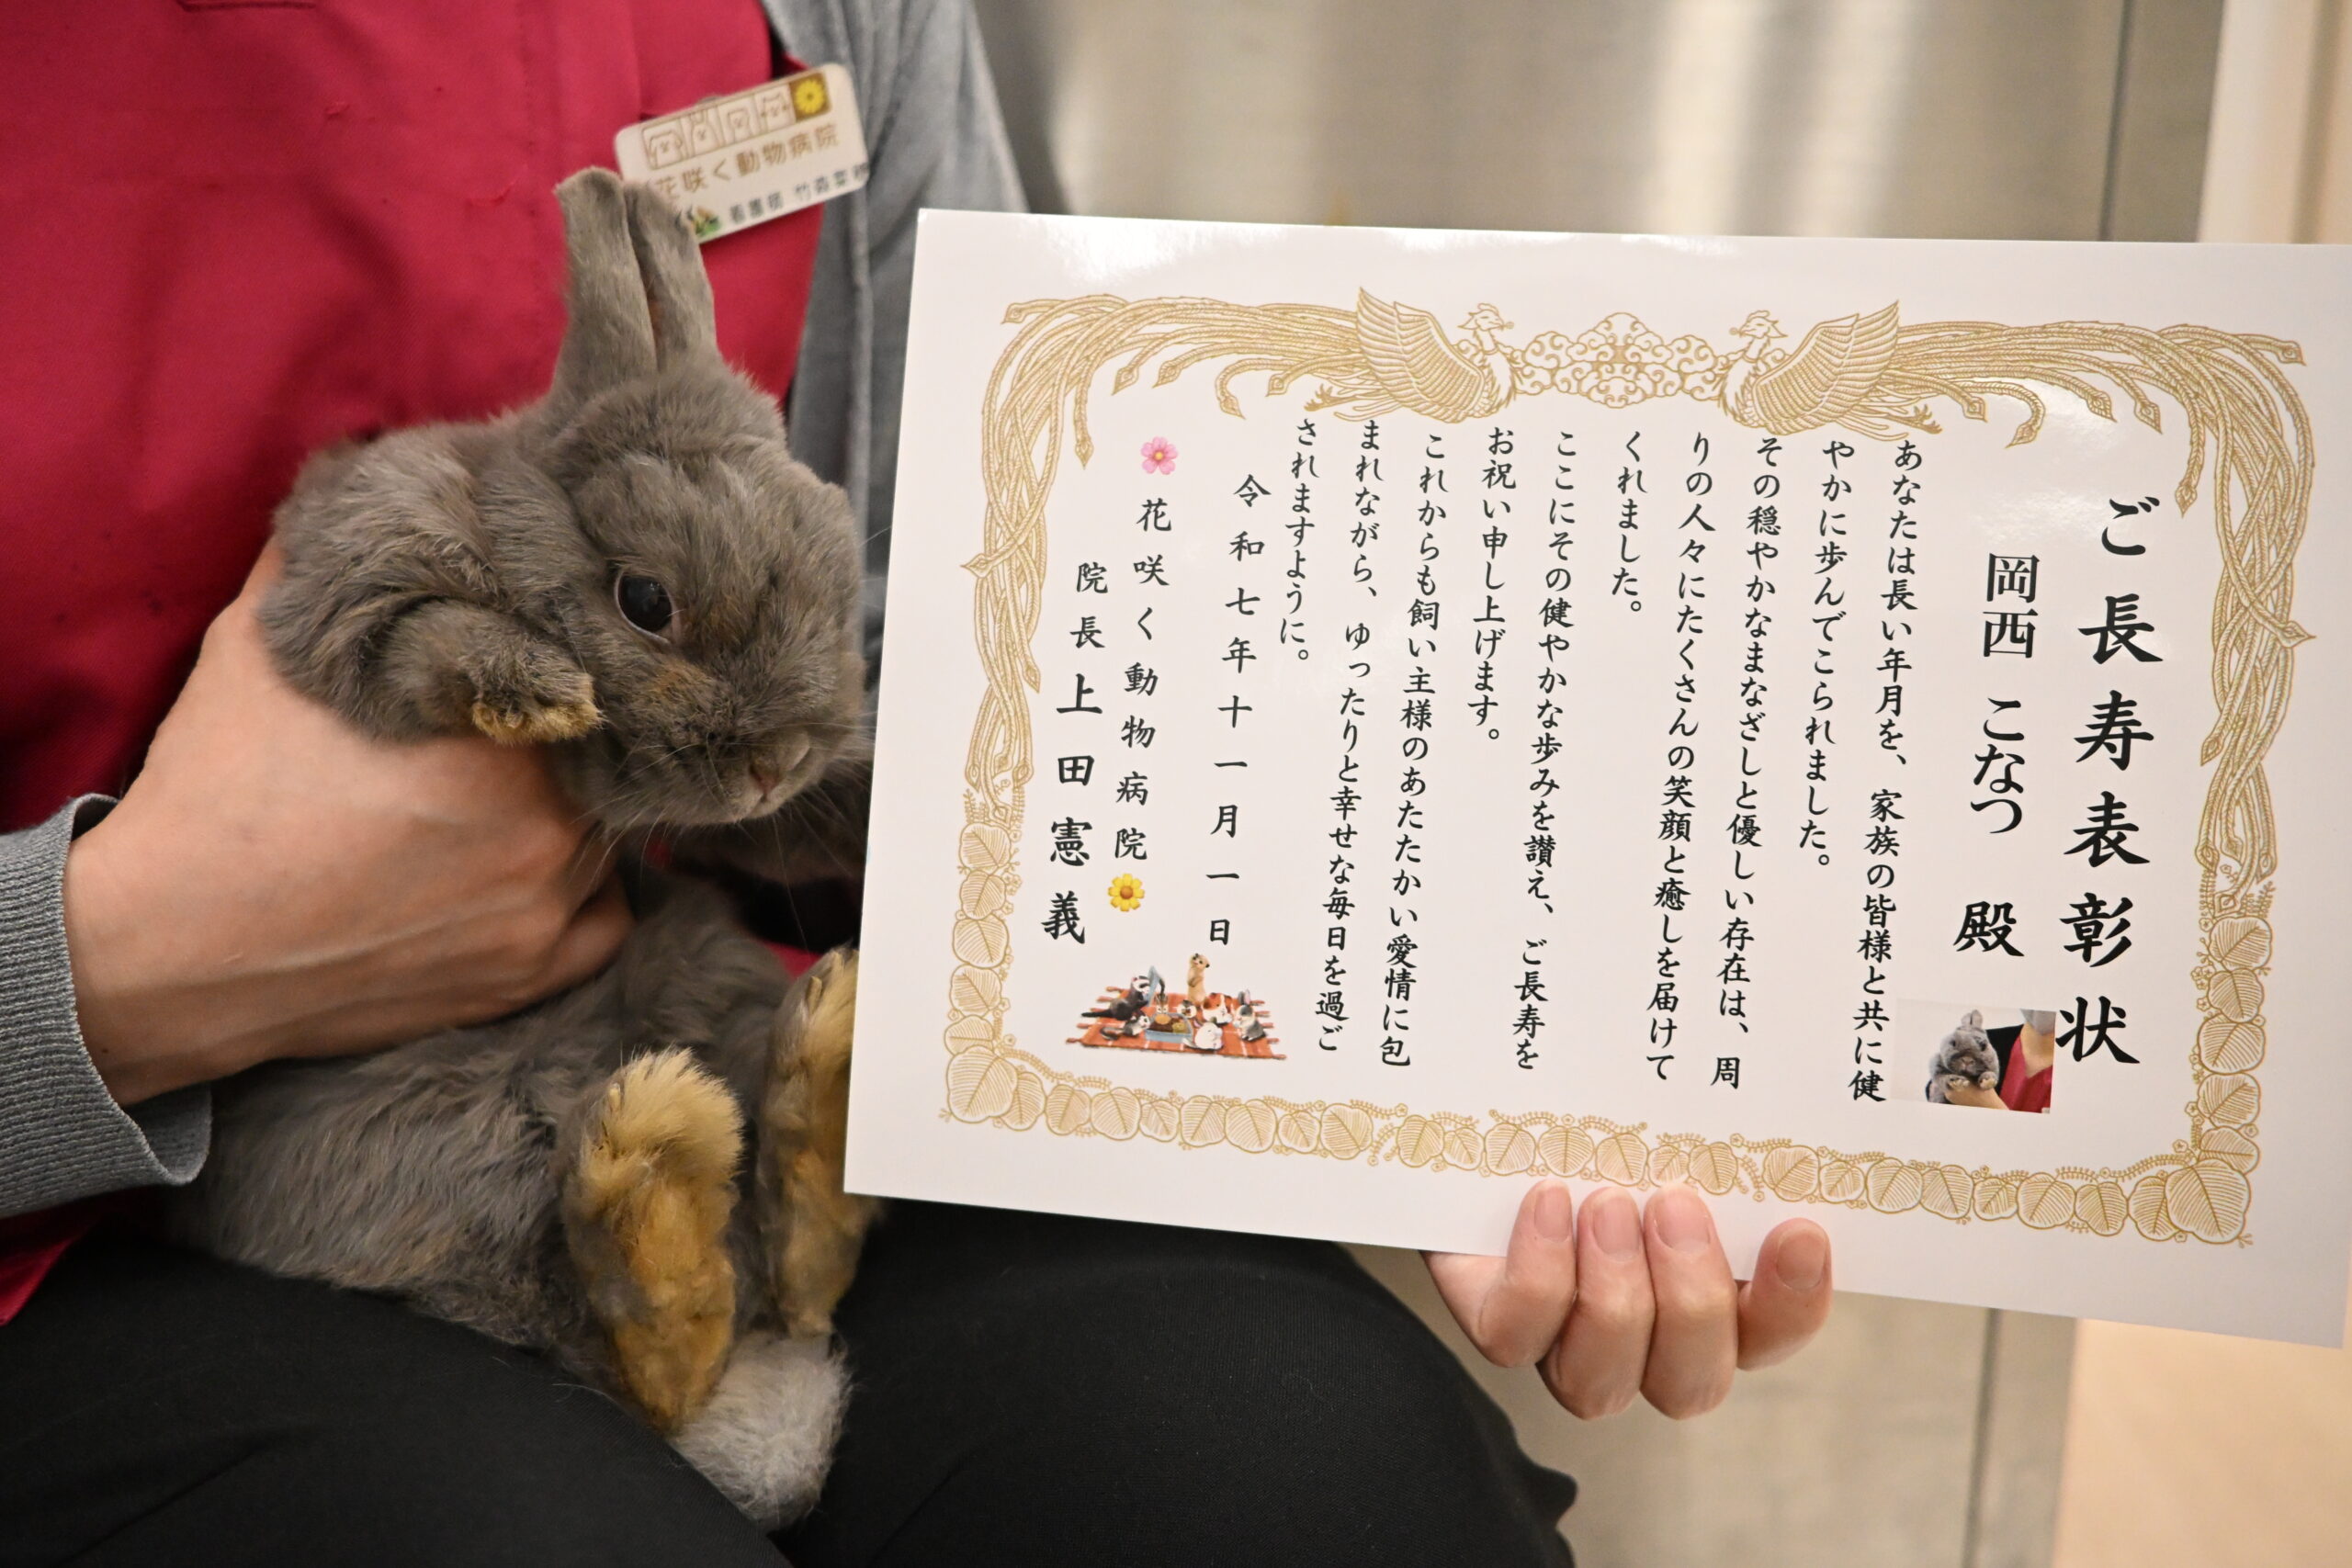 花咲く動物病院
看護師
ご長寿表彰状
岡西 こなつ 殿
あなたは長い年月を、家族の皆様と共に健
やかに歩んでこられました。
その穏やかなまなざしと優しい存在は、周
りの人々にたくさんの笑顔と癒しを届けて
くれました。
ここにその健やかな歩みを讃え、ご長寿を
お祝い申し上げます。
これからも飼い主様のあたたかい愛情に包
まれながら、ゆったりと幸せな毎日を過ご
されますように。
令和七年十一月一日
花咲く動物病院
院長 上田憲義